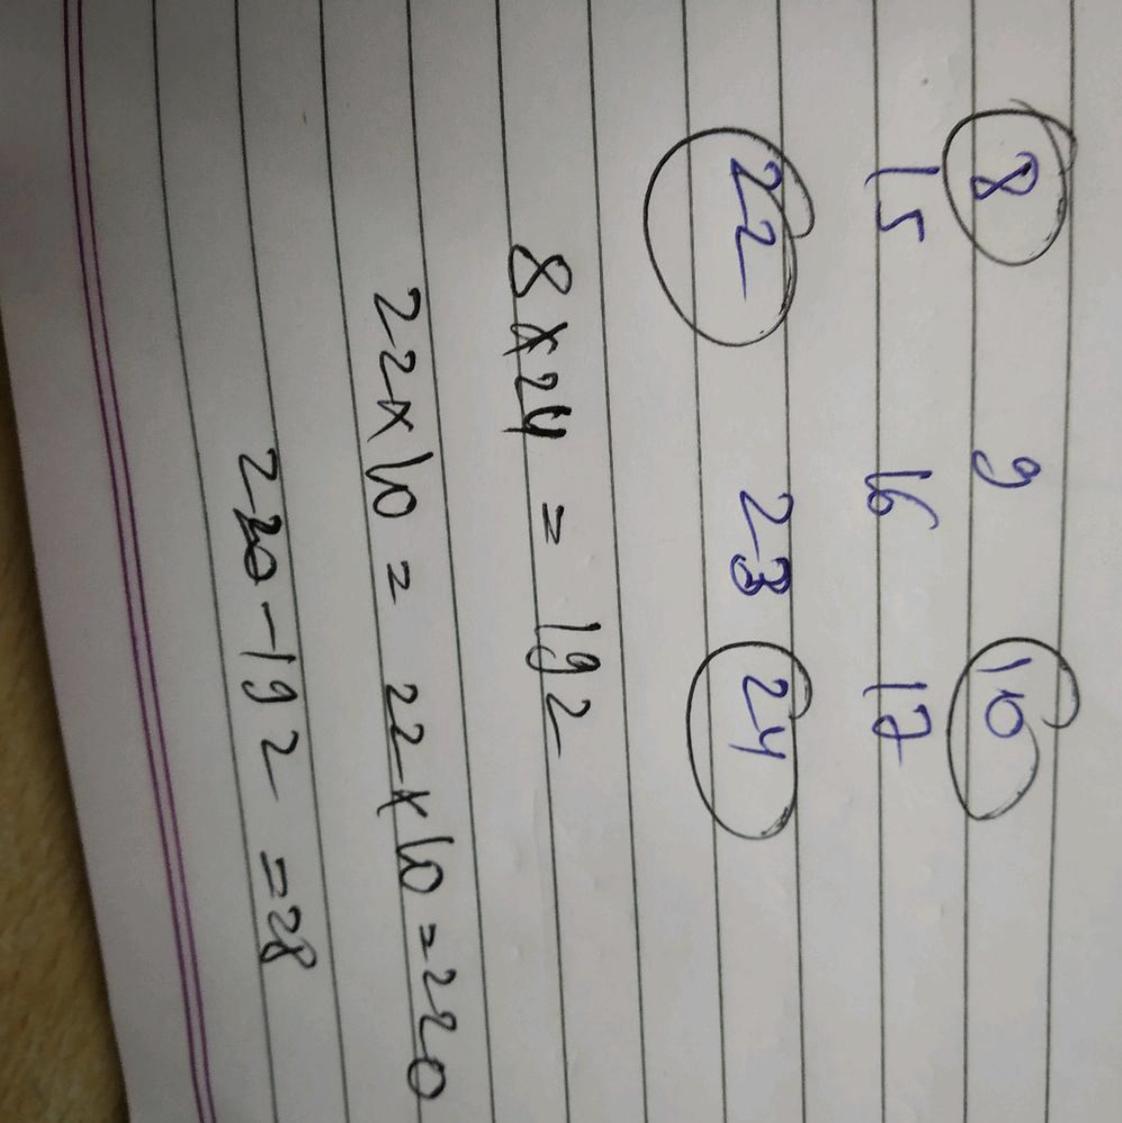 8 9 10
15 16 17
22 23 24
8 x 24 = 192
22 x 10 = 22 x 10 = 220
220 - 192 = 28